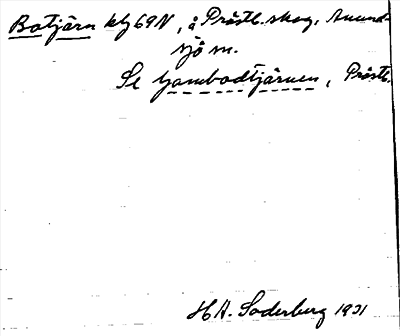 Botjärn kly 69N, å Prästb. skog, Anund-
sjö sn.
Se Gambodtjärnen, Prästb.
H.A. Söderberg 1931